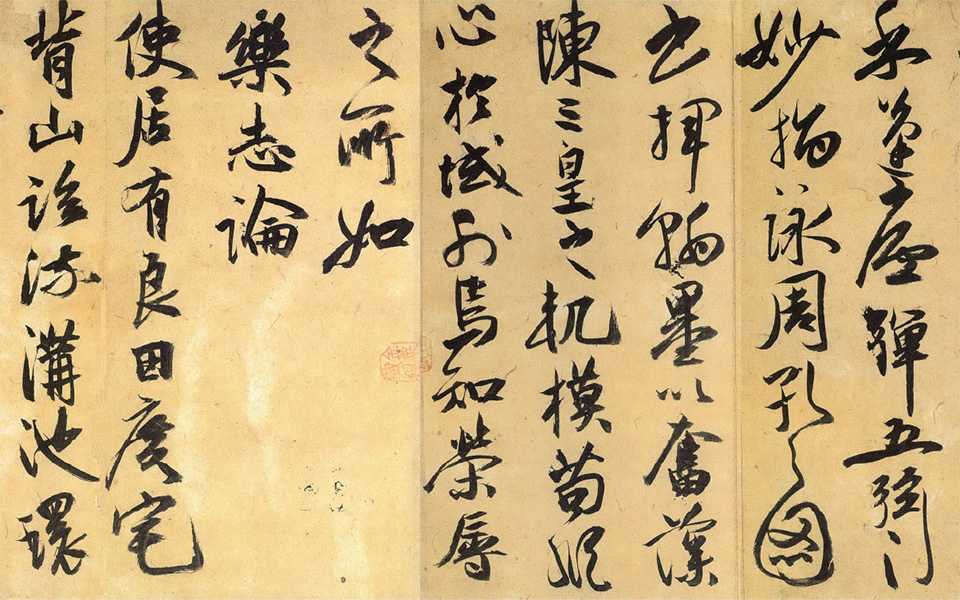 乎蓬廬彈五弦之
妙指詠周孔之圖
書揮翰墨以奮藻
陳三皇之軌模苟縱
心於域外焉知榮辱
之所如
樂志論
使居有良田廣宅
背山臨流溝池環